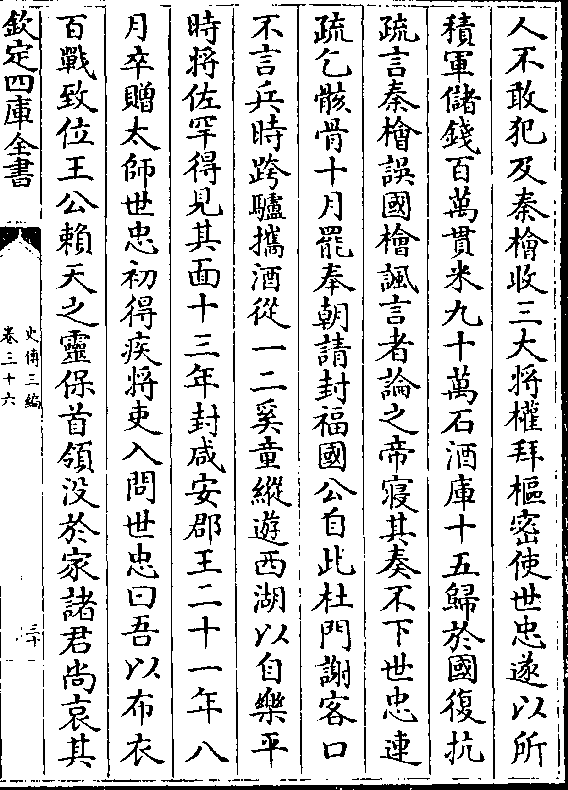 人不敢犯及秦檜收三大将權拜樞密使世忠遂以所
積軍儲錢百萬貫米九十萬石酒庫十五歸於國復抗
疏言秦檜誤國檜諷言者論之帝寢其奏不下世忠連
疏乞骸骨十月罷奉朝請封福國公自此杜門謝客口
不言兵時跨驢攜酒從一二奚童縱遊西湖以自樂平
時将佐罕得見其面十三年封咸安郡王二十一年八
月卒贈太師世忠初得疾将吏入問世忠曰吾以布衣
百戰致位王公賴天之靈保首領没於家諸君尚哀其
欽定四庫全書
史傳三編
卷三十六
三十